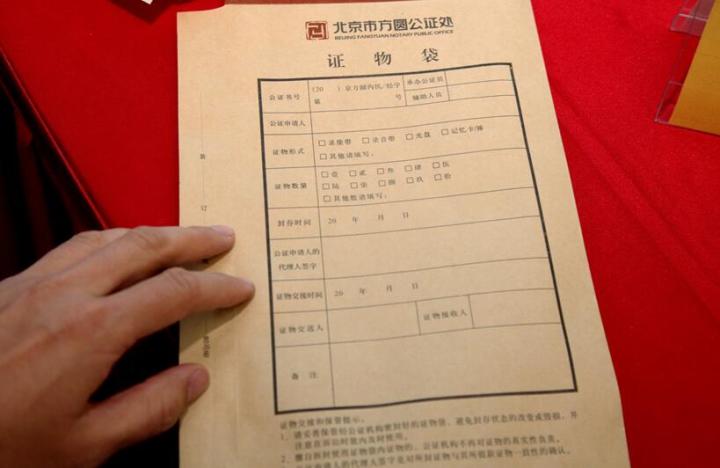 北京市方圆公证处
BEIJING FANGYUAN NOTARY PUBLIC OFFICE
证 物 袋
公证书号
(20 )京方圆内民/经字
第 号
承办公证员
辅助人员
公证申请人
证物形式
□录像带 □录音带 □光盘 □记忆卡/棒
□其他请填写:
证物数量
□壹 □贰 □叁 □肆 □伍
□陆 □柒 □捌 □玖 □拾
□其他数请填写:
封存时间
20 年 月 日
公证申请人的
代理人签字
证物交接时间
20 年 月 日
证物交送人
证物接收人
备 注
装
订
证物交接和保管提示:
1、请妥善保管经公证机构密封好的证物袋,避免封存状态的改变或毁损,并
注意在诉讼时效内及时使用。
2、擅自拆封使用证物袋内证物的,公证机构不再对证物的真实性负责。